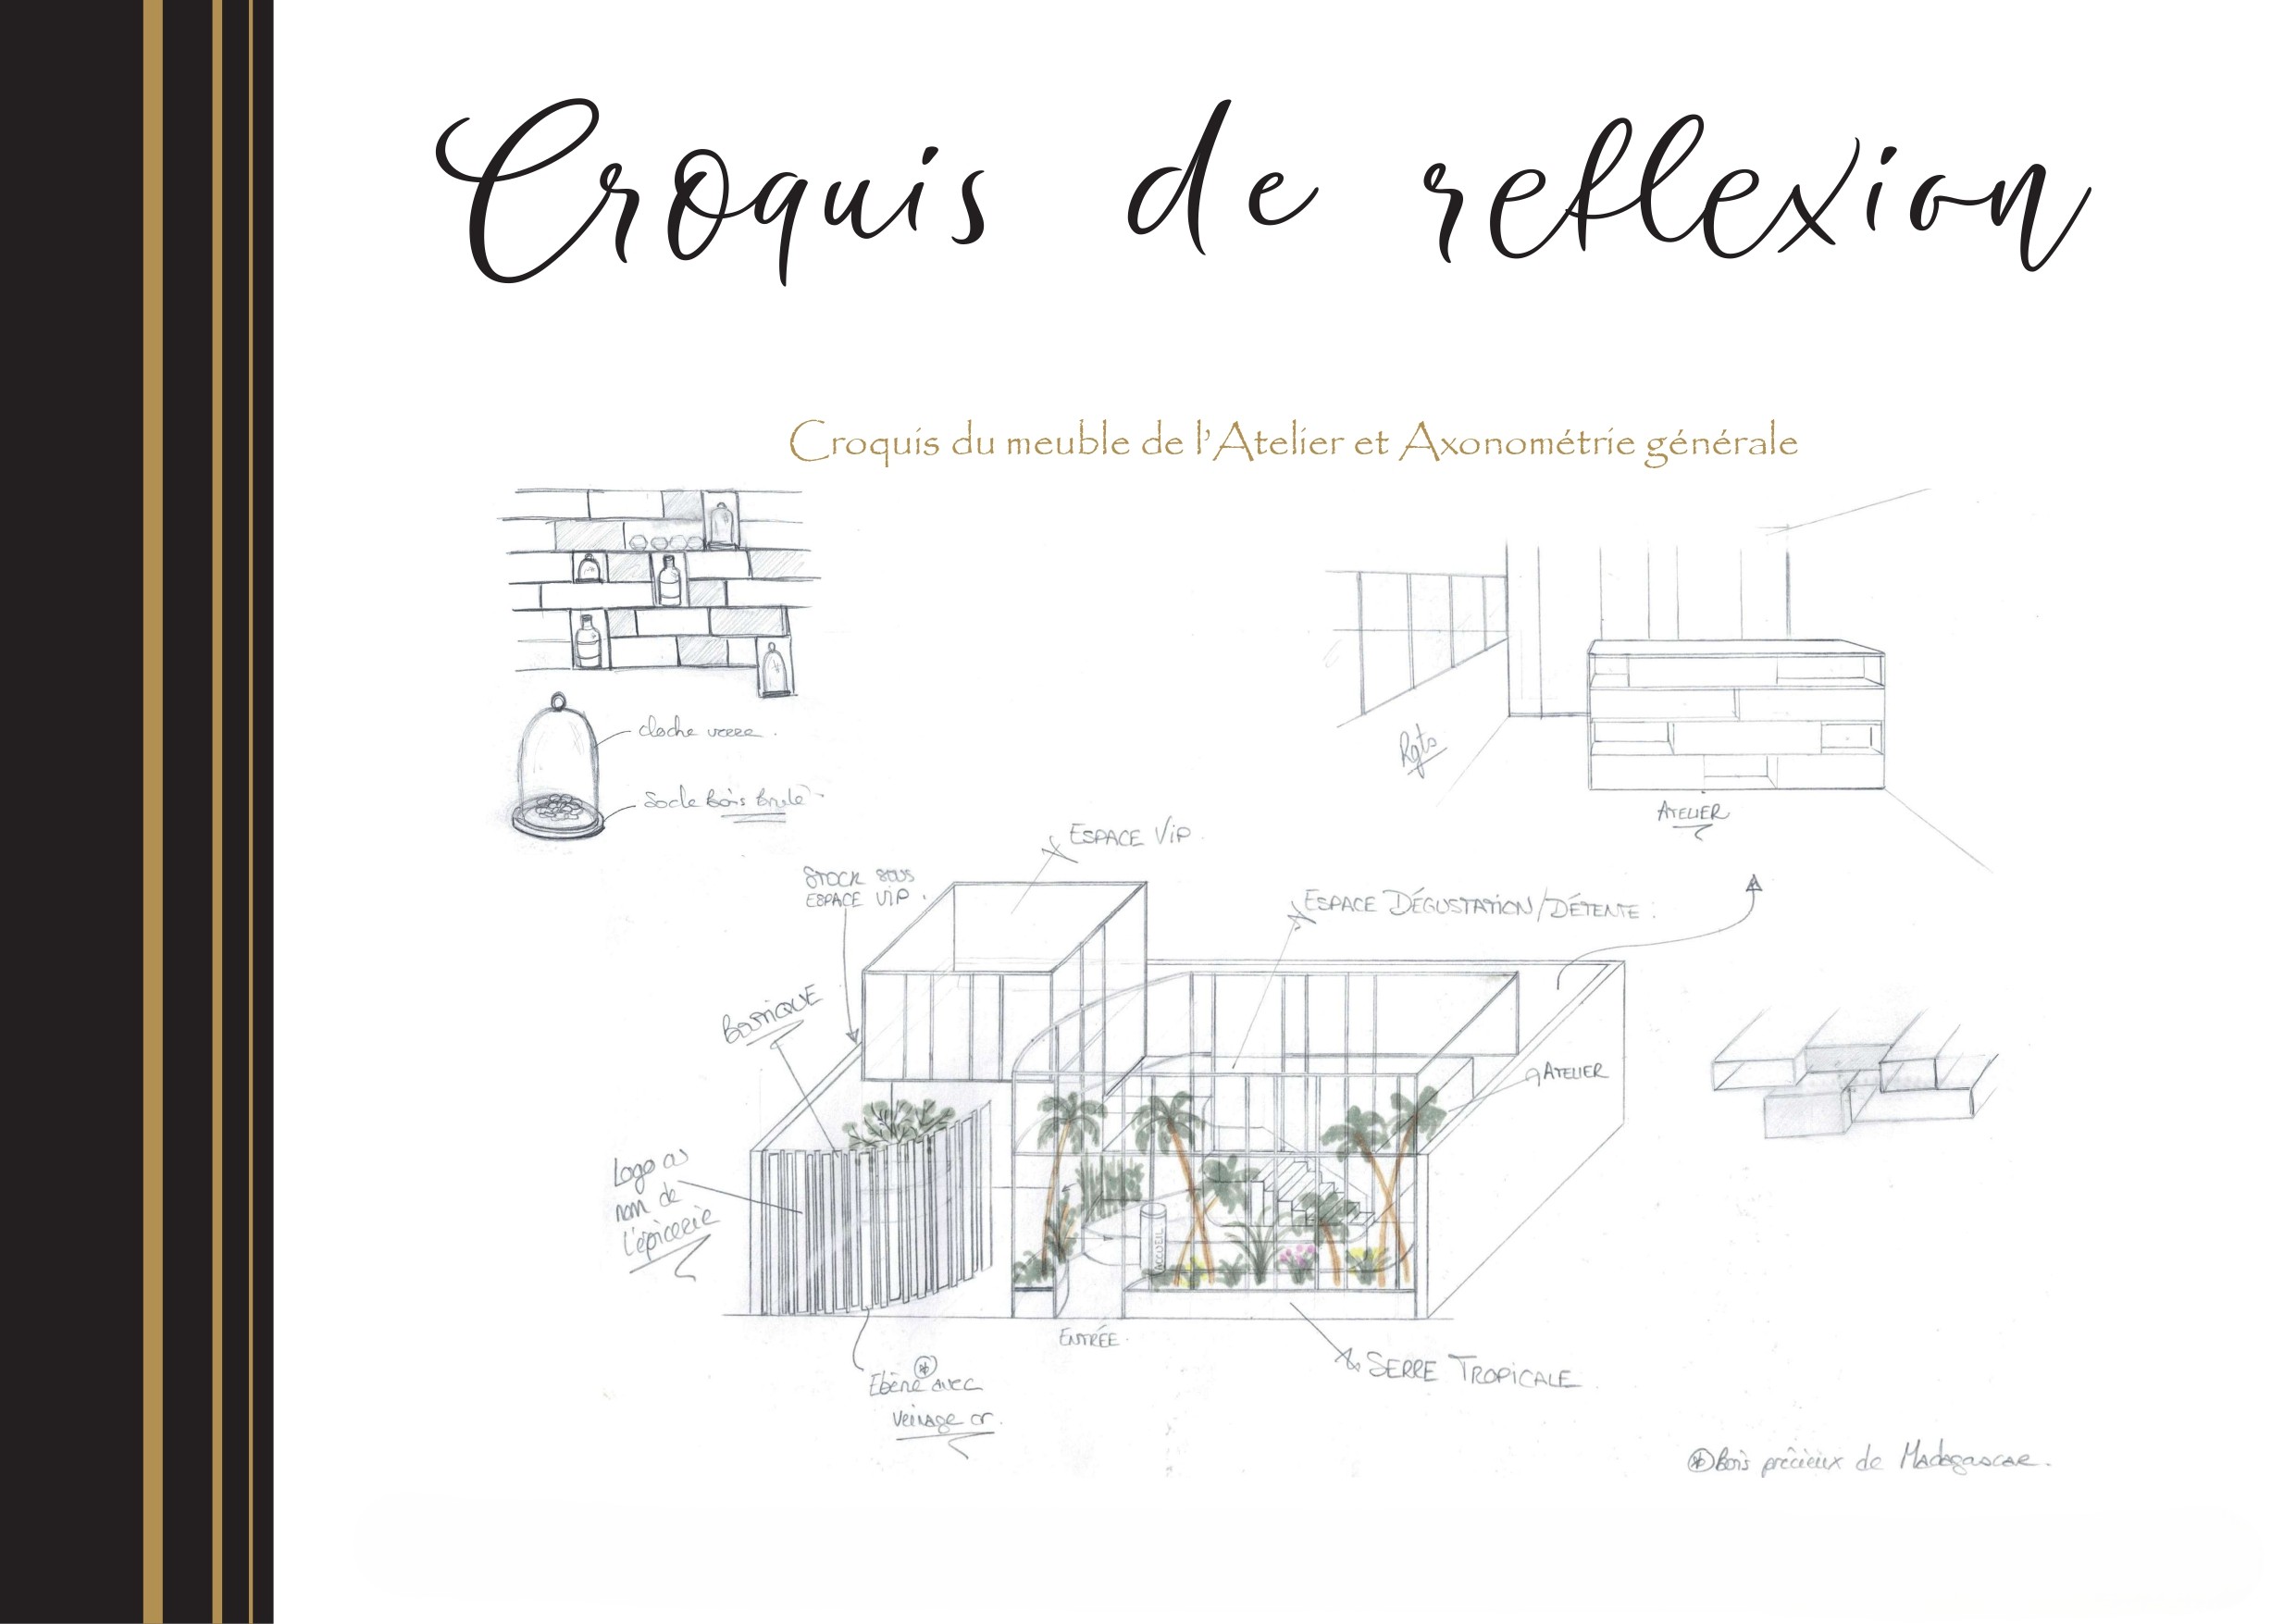 Croquis de reflexion
Croquis du meuble de l'Atelier et Axonométrie générale
cloche verre.
Socle bois brulé
Rgts
ATELIER
ESPACE VIP.
STOCK SOUS
ESPACE VIP.
ESPACE DÉGUSTATION/DÉTENTE:
BOUTIQUE
ATELIER
Logo
nom de
l'épicerie
ACCUEIL
ENTRÉE.
SERRE TROPICALE
Ebène avec
veinage or.
Bois précieux de Madagascar.